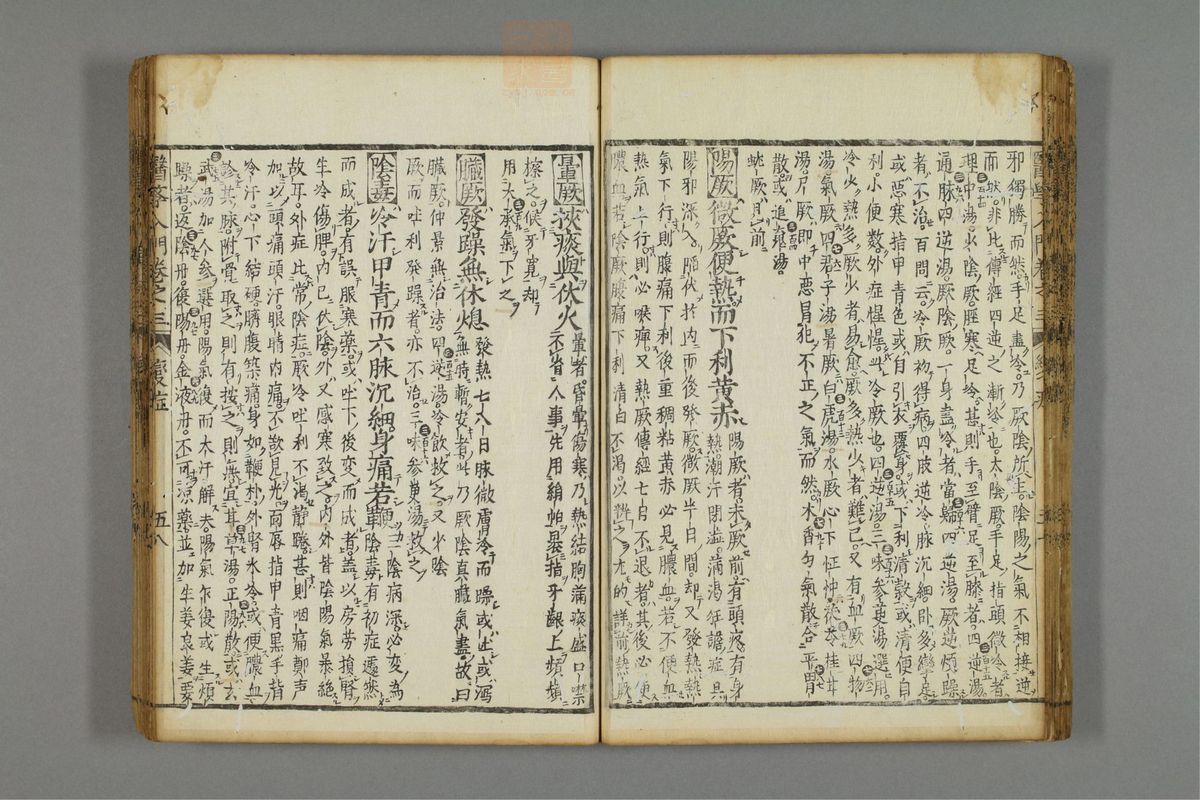 邪獨勝而然手足盡冷乃厥陰所主陰陽之氣不相接逆
而然非比傳經四逆之漸冷也太陰厥手足指頭微冷者
理中湯少陰厥脛寒足冷甚則手至臂足至膝者四逆湯
通脉四逆湯厥陰厥一身盡冷者當歸四逆湯厥逆煩躁
者不治百問云冷厥初得病四肢逆冷脉沉細卧多攣足
或惡寒指甲青色或自引衣覆身或下利清穀或清便自
利小便數外症惺惺此冷厥也四逆湯三味參萸湯選用
冷少熱多厥少者易愈厥多熱少者難已又有血厥四物
湯氣厥四君子湯暑厥白虎湯水厥心下怔忡茯苓桂甘
湯尸厥即中惡冒犯不正之氣而然木香勻氣散合平胃
散或追魂湯
蚘厥見前
陽厥微厥便熱而下利黃赤陽厥者未厥前有頭疼有身
熱潮汗閉澁煩渴狂譫症具
陽邪深入陷伏於内而後發厥微厥半日間却又發熱熱
氣下行則腹痛下利後重稠粘黃赤必見膿血若不便血
熱氣上行則必喉痺又熱厥傳經七日不退者其後必便
膿血若陰厥腹痛下利清白不渴以辨之尤的詳前熱厥
暈厥挾痰與伏火暈者昏暈傷寒乃熱結胸痛痰盛口噤
不省人事先用絹帕裹指牙齦上頻頻
擦之候牙寬却
用大承氣下之
臟厥發躁無休熄發熱七八日脉微膚冷而躁或吐或瀉
無時暫安者此乃厥陰真臟氣盡故曰
臟厥仲景無治法四逆湯冷飲救之又少陰
厥而吐利發躁者亦不治三味參萸湯救之
陰毒冷汗甲青而六脉沉細身痛若鞭三陰病深必變為
陰毒有初症遽然
而成者有誤服寒藥或吐下後變而成者盖以房勞損腎
生冷傷脾内已伏陰外又感寒致内外皆陰陽氣暴絶
故耳外症比常陰症厥冷吐利不渴靜踡甚則咽痛鄭声
加以頭痛頭汗眼睛内痛不欲見光面唇指甲青黑手背
冷汗心下結硬臍腹築痛身如鞭朴外腎氷冷或便膿血
診其脉附骨取之則有按之則無宜甘草湯正陽散或玄
武湯加人參選用陽氣復而大汗解矣陽氣乍復或生煩
躁者返陰丹復陽丹金液丹不可凉藥並加生姜良姜萸
醫學入門卷之三 雙症 五八